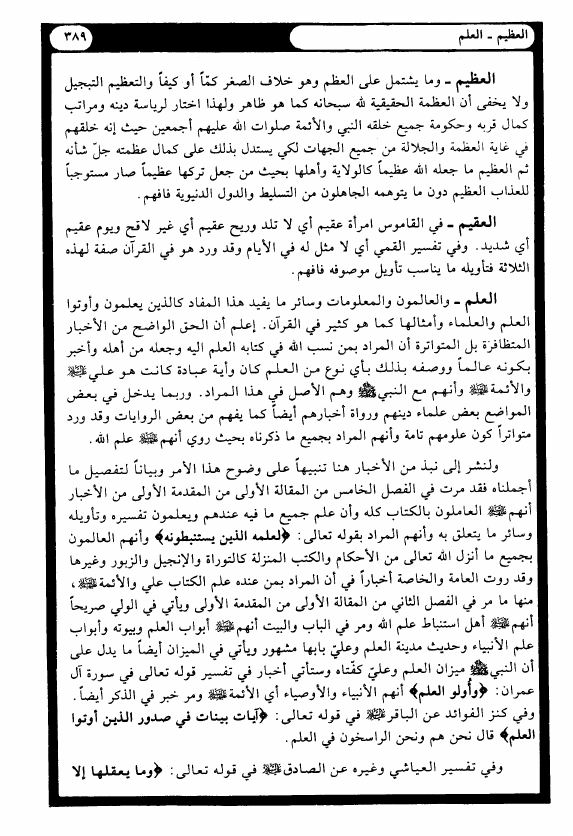 العظيم ـ العلم
٣٨٩
العظيم ـ وما يشتمل على العظم وهو خلاف الصغر كمّاً أو كيفاً والتعظيم التبجيل
ولا يخفى أن العظمة الحقيقية لله سبحانه كما هو ظاهر ولهذا اختار لرياسة دينه ومراتب
كمال قربه وحكومة جميع خلقه النبي والأئمة صلوات الله عليهم أجمعين حيث إنه خلقهم
في غاية العظمة والجلالة من جميع الجهات لكي يستدل بذلك على كمال عظمته جلّ شأنه
ثم العظيم ما جعله الله عظيماً كالولاية وأهلها بحيث من جعل تركها عظيماً صار مستوجباً
للعذاب العظيم دون ما يتوهمه الجاهلون من التسليط والدول الدنيوية فافهم.
العقيم ـ في القاموس امرأة عقيم أي لا تلد وريح عقيم أي غير لاقح ويوم عقيم
أي شديد. وفي تفسير القمي أي لا مثل له في الأيام وقد ورد هو في القرآن صفة لهذه
الثلاثة فتأويله ما يناسب تأويل موصوفه فافهم.
العلم ـ والعالمون والمعلومات وسائر ما يفيد هذا المفاد كالذين يعلمون وأوتوا
العلم والعلماء وأمثالها كما هو كثير في القرآن. إعلم أن الحق الواضح من الأخبار
المتظافرة بل المتواترة أن المراد بمن نسب الله في كتابه العلم اليه وجعله من أهله وأخبر
بكونه عالماً ووصفه بذلك بأي نوع من العلم كان وأية عبادة كانت هو علي عليه السلام
والأئمة عليهم السلام وأنهم مع النبي ﷺ وهم الأصل في هذا المراد. وربما يدخل في بعض
المواضع بعض علماء دينهم ورواة أخبارهم أيضاً كما يفهم من بعض الروايات وقد ورد
متواتراً كون علومهم تامة وأنهم المراد بجميع ما ذكرناه بحيث روي أنهم عليهم السلام علم الله.
ولنشر إلى نبذ من الأخبار هنا تنبيهاً على وضوح هذا الأمر وبياناً لتفصيل ما
أجملناه فقد مرت في الفصل الخامس من المقالة الأولى من المقدمة الأولى من الأخبار
أنهم عليهم السلام العاملون بالكتاب كله وأن علم جميع ما فيه عندهم ويعلمون تفسيره وتأويله
وسائر ما يتعلق به وأنهم المراد بقوله تعالى: ﴿لعلمه الذين يستنبطونه﴾ وأنهم العالمون
بجميع ما أنزل الله تعالى من الأحكام والكتب المنزلة كالتوراة والإنجيل والزبور وغيرها
وقد روت العامة والخاصة أخباراً في أن المراد بمن عنده علم الكتاب علي والأئمة عليهم السلام،
منها ما مر في الفصل الثاني من المقالة الأولى من المقدمة الأولى ويأتي في الولي صريحاً
أنهم عليهم السلام أهل استنباط علم الله ومر في الباب والبيت أنهم عليهم السلام أبواب العلم وبيوته وأبواب
علم الأنبياء وحديث مدينة العلم وعليّ بابها مشهور ويأتي في الميزان أيضاً ما يدل على
أن النبي ﷺ ميزان العلم وعليّ كفّتاه وستأتي أخبار في تفسير قوله تعالى في سورة آل
عمران: ﴿وأُولو العلم﴾ أنهم الأنبياء والأوصياء أي الأئمة عليهم السلام ومر خبر في الذكر أيضاً.
وفي كنز الفوائد عن الباقر عليه السلام في قوله تعالى: ﴿آيات بينات في صدور الذين أوتوا
العلم﴾ قال نحن هم ونحن الراسخون في العلم.
وفي تفسير العياشي وغيره عن الصادق عليه السلام في قوله تعالى: ﴿وما يعقلها إلا